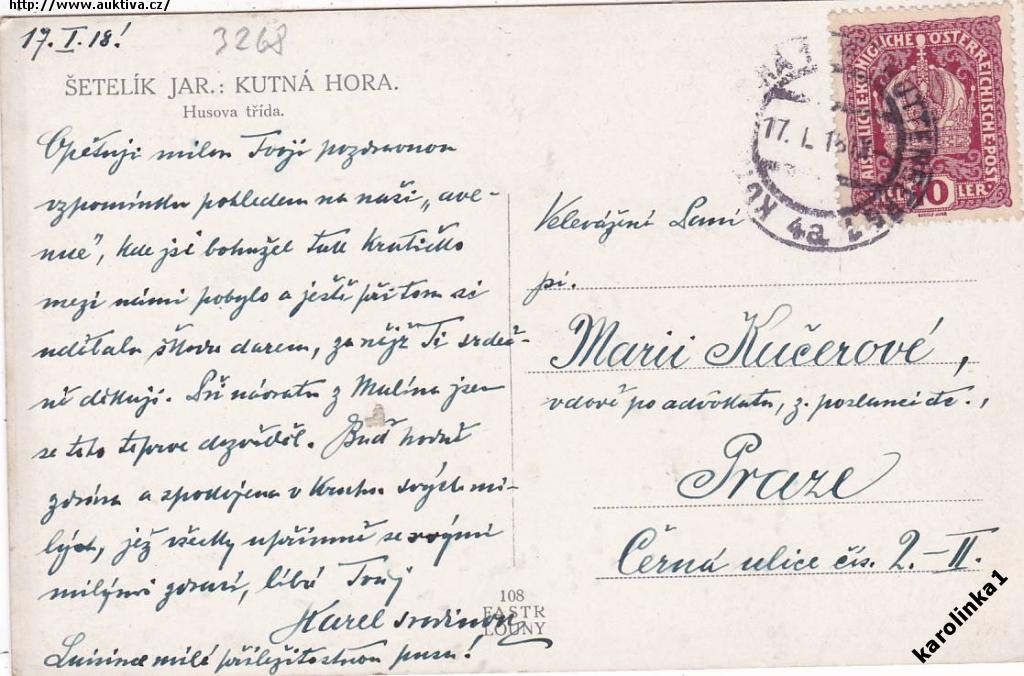 http://www.auktiva.cz/
17. I. 18!
3268
ŠETELÍK JAR.: KUTNÁ HORA.
Husova třída.
Opětuji milou Tvoji pozdravnou
vzpomínku pohledem na naši „ave-
nue", kde jsi bohužel tak kratičko
mezi námi pobyla a ještě při tom si
udělala škodu darem, za nějž Ti srdeč-
ně děkuji. Při návratu z Malína jsem
se toho teprve dozvěděl. Buď hodně
zdráva a spokojena v kruhu svých mi-
lých, jež všecky upřímně se svými
milými zdraví, líbá Tvůj
Karel
milé příležitostnou pusu!
108
FASTR
LOUNY
KAISERLICHE KÖNIGLICHE ÖSTERREICHISCHE POST
10
HELLER
17. I. 18
4a
KUTTENBERG 1
Velevážená Paní
pí.
Marii Kučerové,
vdově po advokátu, z. poslanci etc.,
Praze
Černá ulice čís. 2.-II.
karolinka1